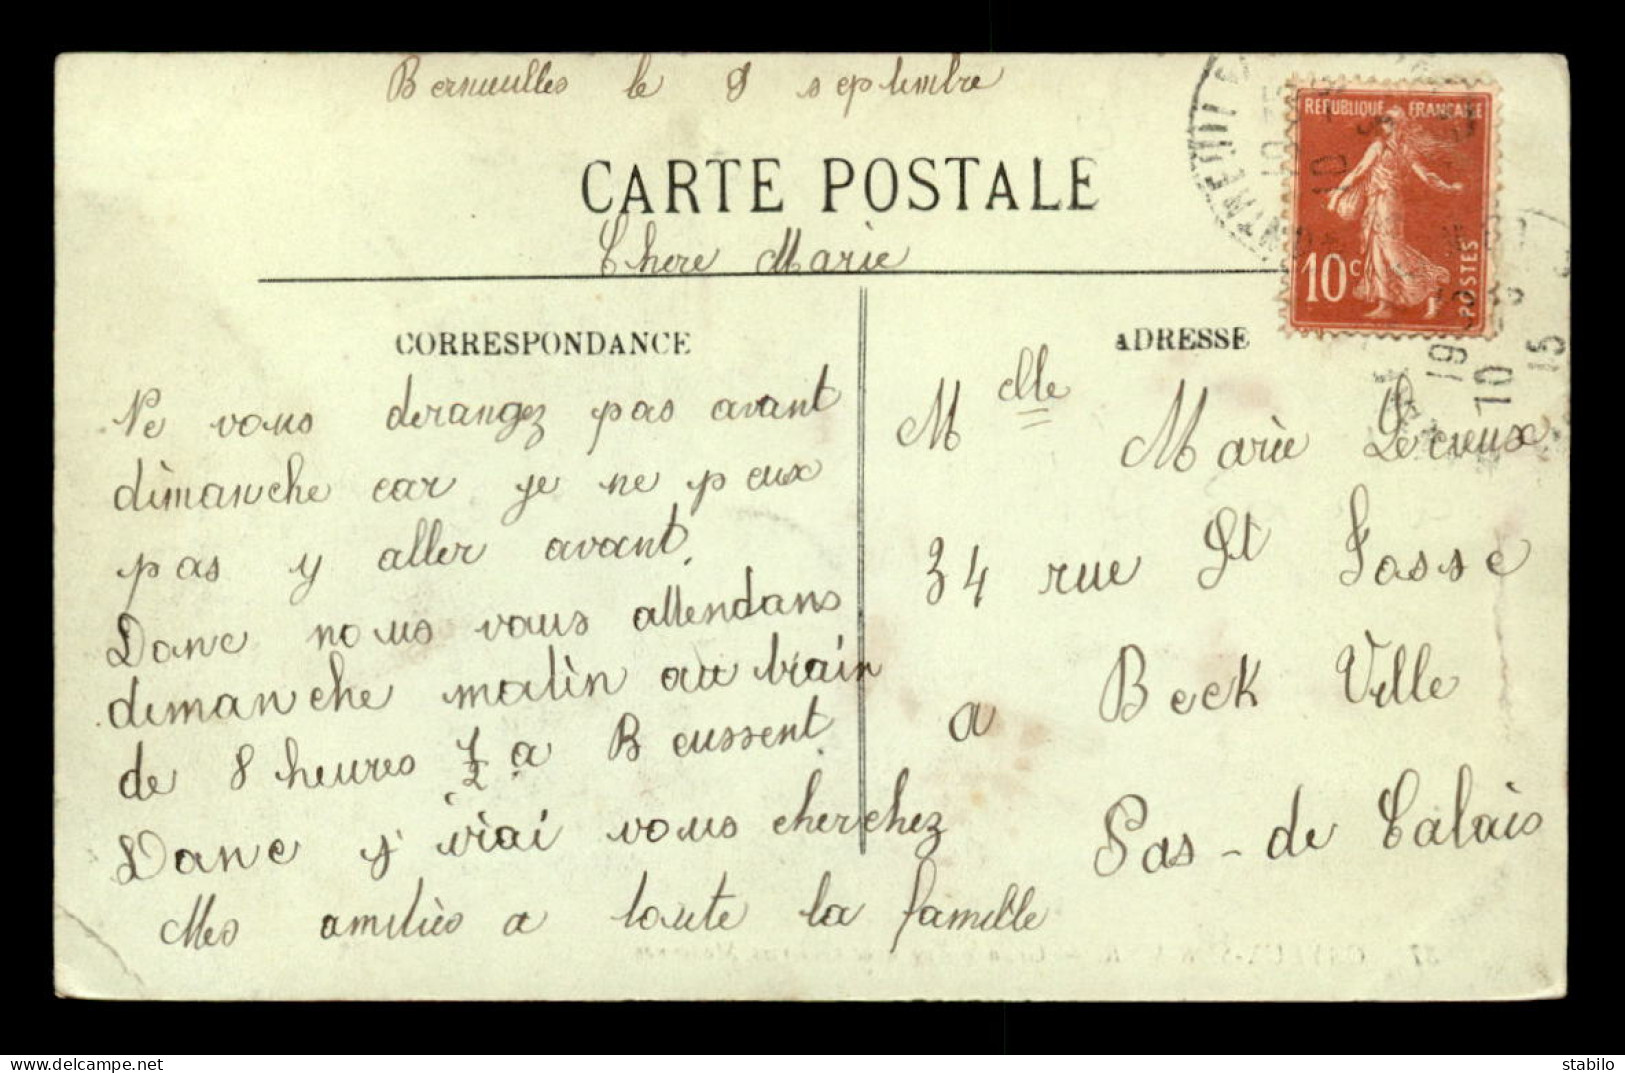 Bernieulles le 9 septembre
CARTE POSTALE
Chere Marie
REPUBLIQUE FRANÇAISE
10c
POSTES
CORRESPONDANCE
Ne vous derangez pas avant
dimanche car je ne peux
pas y aller avant.
Danc nous vous attendans
dimanche matin au train
de 8 heures 1/2 a Beussent.
Danc j'virai vous cherchez
Mes amitiès a toute la famille
ADRESSE
Melle Marie Lecreux
34 rue St Josse
a Beck Ville
Pas-de Calais
stabilo